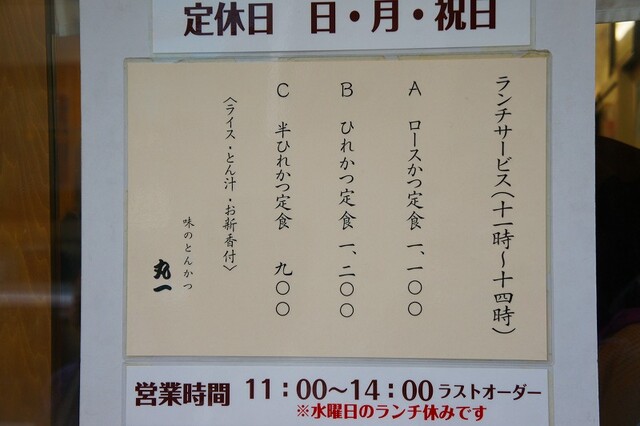 定休日 日・月・祝日
ランチサービス(十一時〜十四時)
A ロースかつ定食 一、一〇〇
B ひれかつ定食 一、二〇〇
C 半ひれかつ定食 九〇〇
〈ライス・とん汁・お新香付〉
味のとんかつ
丸一
営業時間 11:00〜14:00 ラストオーダー
※水曜日のランチ休みです